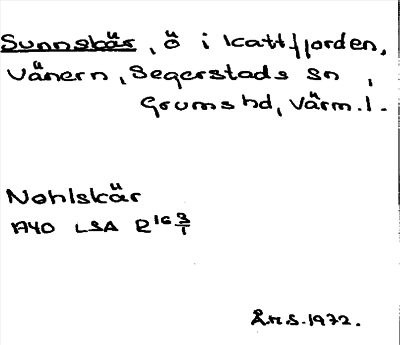 Sunnskär, ö i Kattfjorden,
Vänern, Segerstads sn,
Grums hd, Värm. l.
Nohlskär
1740 LSA R 16 3/1
Å.H.S. 1972.